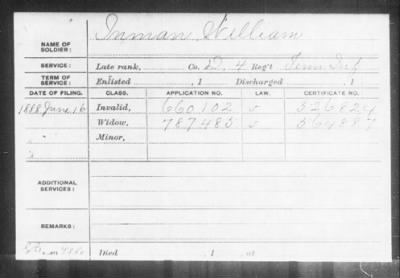 Inman, William
NAME OF
SOLDIER:
SERVICE: Late rank, Co. D, 4 Reg't Tenn Inf
TERM OF
SERVICE: Enlisted , 1 Discharged , 1
DATE OF FILING. CLASS. APPLICATION NO. LAW. CERTIFICATE NO.
1888 June 16 Invalid, 660102
Widow, 787485
Minor,
ADDITIONAL
SERVICES:
REMARKS:
Died , 1 , at